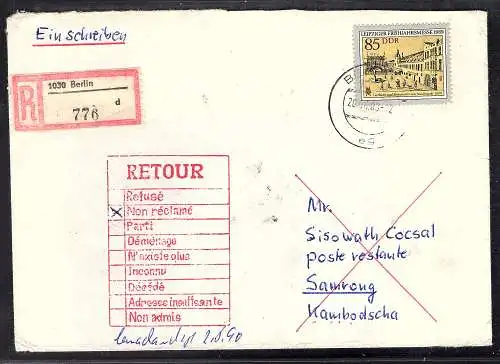 Einschreiben
LEIPZIGER FRÜHJAHRSMESSE 1989
85 DDR
R
1030 Berlin
d
776
RETOUR
Refusé
X Non réclamé
Parti
Déménagé
N'existe plus
Inconnu
Décédé
Adresse insuffisante
Non admis
2.5.90
Mr.
Sisowath Cocsal
poste restante
Samrong
Kambodscha